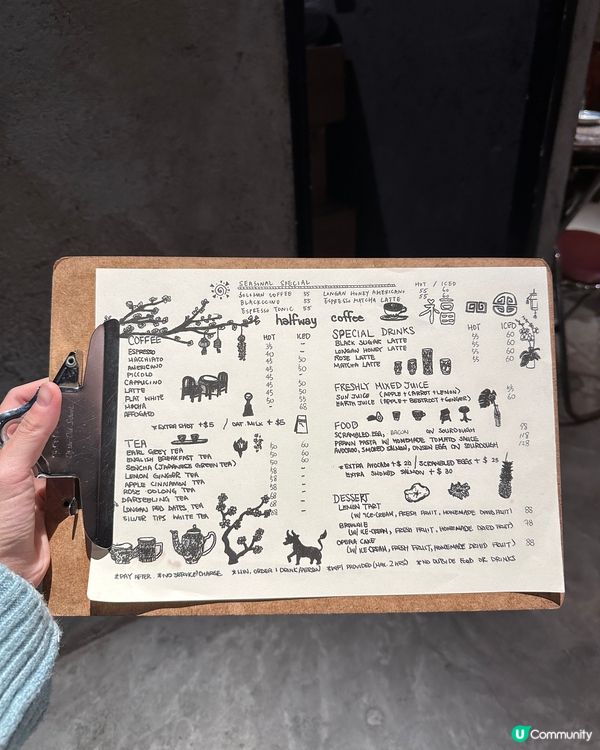 SEASONAL SPECIAL
HOT / ICED
55
LONGAN HONEY AMERICANO 55 60
BLACKCCINO 55 ESPRESSO MATCHA LATTE 55 60
ESPRESSO TONIC 55
halfway coffee 福
COFFEE HOT ICED
ESPRESSO 35 -
MACCHIATO 40 -
AMERICANO
PICCOLO
CAPPUCCINO
LATTE
FLAT WHITE
MOCHA
AFFOGATO
*EXTRA SHOT +$5 / OAT MILK +$5
TEA
EARL GREY TEA 50 60
ENGLISH BREAKFAST TEA 50 60
SENCHA (JAPANESE GREEN TEA)
LEMON GINGER TEA
APPLE CINNAMON TEA
ROSE OOLONG TEA
DARJEELING TEA
LONGAN RED DATES TEA
SILVER TIPS WHITE TEA
SPECIAL DRINKS HOT ICED
BLACK SUGAR LATTE 55 60
LONGAN HONEY LATTE 55 60
ROSE LATTE 55 60
MATCHA LATTE 55 60
FRESHLY MIXED JUICE
SUN JUICE (APPLE+CARROT+LEMON) 55
EARTH JUICE (APPLE+BEETROOT+GINGER) 60
FOOD
SCRAMBLED EGG, BACON ON SOURDOUGH 98
PRAWN PASTA W/ HOMEMADE TOMATO SAUCE 118
AVOCADO, SMOKED SALMON, ONSEN EGG ON SOURDOUGH 128
*EXTRA AVOCADO +$ 20 / SCRAMBLED EGGS +$ 25
EXTRA SMOKED SALMON +$ 30
DESSERT
LEMON TART
(W/ ICE-CREAM, FRESH FRUIT, HOMEMADE DRIED FRUIT) 88
BROWNIE
(W/ ICE-CREAM, FRESH FRUIT, HOMEMADE DRIED FRUIT) 78
OPERA CAKE
(W/ ICE-CREAM, FRESH FRUIT, HOMEMADE DRIED FRUIT) 88
*PAY AFTER. *NO SERVICE CHARGE *MIN. ORDER 1 DRINK/PERSON *WIFI PROVIDED (MAX. 2 HRS) *NO OUTSIDE FOOD OR DRINKS
U Community